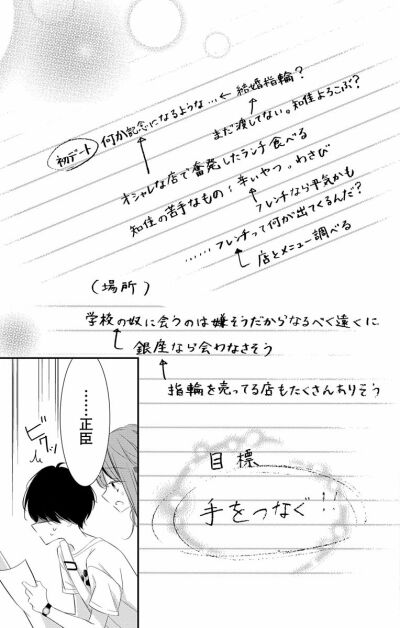 初デート 何か記念になるような… ← 結婚指輪？
まだ渡してない。知佳よろこぶ？
オシャレな店で奮発したランチ食べる
知佳の苦手なもの：辛いやつ。わさび
フレンチなら平気かも
……フレンチって何が出てくるんだ？
店とメニュー調べる
（場所）
学校の奴に会うのは嫌そうだからなるべく遠くに
銀座なら会わなさそう
指輪を売ってる店もたくさんありそう
目標
手をつなぐ!!
……正臣
ビクッ